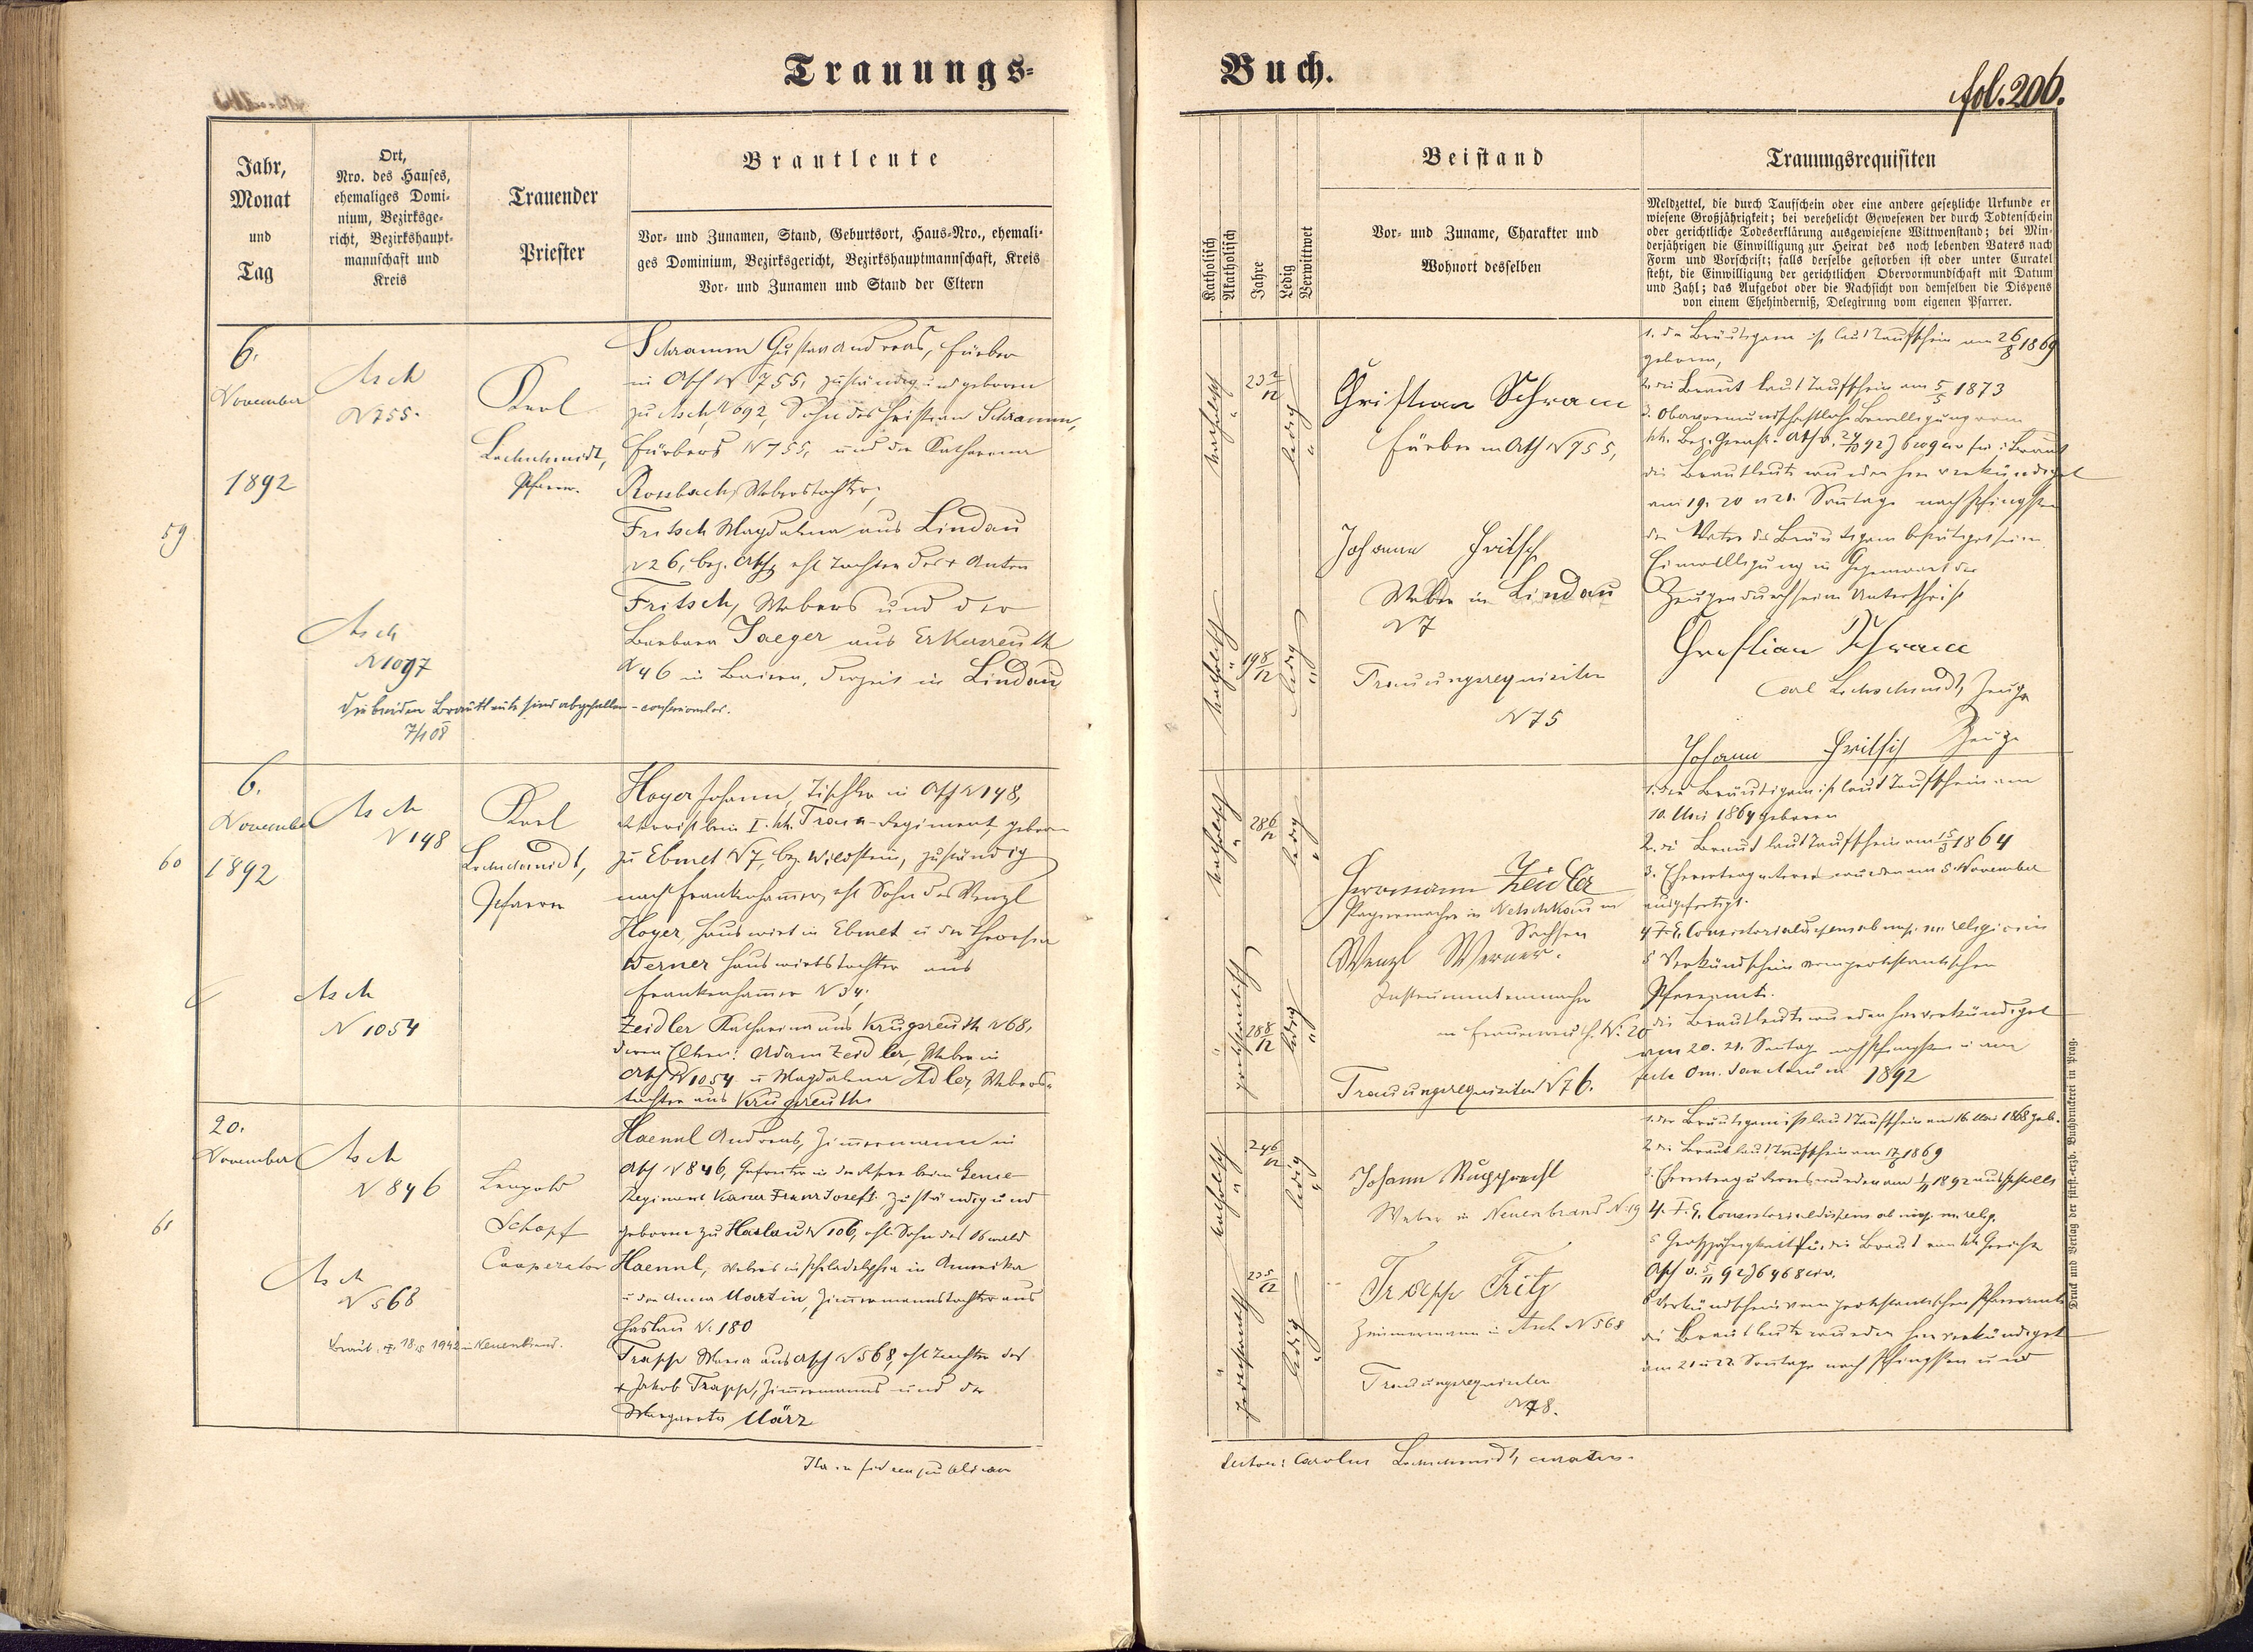 Trauungs=
Buch.
fol. 206.
Jahr,
Monat
und
Tag
Ort,
Nro. des Hauses,
ehemaliges Domi-
nium, Bezirksge-
richt, Bezirkshaupt-
mannschaft und
Kreis
Trauender
Priester
Brautleute
Vor- und Zunamen, Stand, Geburtsort, Haus-Nro., ehemali-
ges Dominium, Bezirksgericht, Bezirkshauptmannschaft, Kreis
Vor- und Zunamen und Stand der Eltern
Katholisch
Akatholisch
Jahre
Ledig
Verwittwet
Beistand
Vor- und Zuname, Charakter und
Wohnort desselben
Trauungsrequisiten
Meldzettel, die durch Taufschein oder eine andere gesetzliche Urkunde er
wiesene Großjährigkeit; bei verehelicht Gewesenen der durch Todtenschein
oder gerichtliche Todeserklärung ausgewiesene Wittwenstand; bei Min-
derjährigen die Einwilligung zur Heirat des noch lebenden Vaters nach
Form und Vorschrift; falls derselbe gestorben ist oder unter Curatel
steht, die Einwilligung der gerichtlichen Obervormundschaft mit Datum
und Zahl; das Aufgebot oder die Nachsicht von demselben die Dispens
von einem Ehehinderniß, Delegirung vom eigenen Pfarrer.
59
6.
November
1892
Asch
N 755.
Asch
N 1097
die beiden Brautleute sind abgefallen - confessionslos.
Karl
Lochschmidt,
Pfarrer.
Schramm Gustav Andreas, Färber
in Asch N 755, zuständig und geboren
zu Asch N 692, Sohn des Christian Schramm,
Färbers N 755, und der Katharina
Rossbach, Weberstochter;
Fritsch Magdalena aus Lindau
N 26, bez. Asch, ehl Tochter des + Anton
Fritsch, Webers und der
Barbara Jaeger aus Erkersreuth
N 46 in Baiern, derzeit in Lindau
katholisch
"
23 2/12
ledig
"
katholisch
"
19 8/12
ledig
"
Christian Schram
Färber in Asch N 755,
Johann Fritsch
Weber in Lindau
N 7
Trauungsrequisiten
N 75
1. der Bräutigam ist laut Taufschein am 26/8 1869
geboren,
2. die Braut laut Taufschein am 5/5 1873
3. Obervormundschaftliche Bewilligung vom
die Brautleute wurden hier verkündiget
am 19. 20 u 21. Sontage nach Pfingsten
der Vater des Bräutigam bestätiget seine
Einwilligung in Gegenwart der
Zeugen durch seine Unterschrift
Christian Schram
Carl Lochschmidt, Zeuge
Johann Fritsch Zeuge
60
6.
November
1892
Asch
N 148
Asch
N 1054
Karl
Lochschmidt,
Pfarrer
Hoyer Johann, Tischler in Asch N 148,
Reservist beim I. kk. Train-Regiment, geboren
zu Ebmet N 7, bez Wildstein, zuständig
nach Frankenhamer, ehl Sohn des Wenzl
Hoyer, Hauswirt in Ebmet u der Theresia
Werner Hauswirtstochter aus
Frankenhamer N 34;
Zeidler Katharina aus Krugsreuth N 68,
deren Eltern: Adam Zeidler, Weber in
Asch N 1054 u Magdalena Adler, Webers-
tochter aus Krugsreuth
katholisch
"
28 6/12
ledig
"
"
protestantisch
28 8/12
ledig
"
Hermann Zeidler
Papiermacher in Netschkau in
Sachsen
Wenzl Werner.
Instrumentenmacher
in Frauenreuth N. 20
Trauungsrequisiten N 76.
1. der Bräutigam ist laut Taufschein am
10. Mai 1864 geboren
2. die Braut laut Taufschein am 15/3 1864
3. Ehevertrag wurden am 5 November
ausgefertigt.
4 F. E. Consistorialdispens ab imp. mx religionis
5 Verkündschein vom protestantischen
Pfarramte.
die Brautleute wurden hier verkündiget
am 20. 21. Sontag nach Pfingsten u am
feste Om. Sanctorum 1892
61
20.
November
Asch
N 846
Asch
N 568
Braut + 18/5 1942 in Neuenbrand.
Leopold
Schopf
Cooperator
Haennl Andreas, Zimmermann in
Asch N 846, Gefreiter in der Reserve beim Genie
Regiment Kaiser Franz Josef I. zuständig und
geboren zu Haslau N 106, ehl. Sohn des Oswald
Haennl, Webers in Philadelphia in Amerika
u der Anna Martin, Zimmermannstochter aus
Haslau N. 180
Trapp Maria aus Asch N 568, ehl Tochter des
+ Jakob Trapp, Zimmermanns und der
Margareta März
katholisch
"
24 6/12
ledig
"
"
protestantisch
23 5/12
ledig
"
Johann Rupprecht
Weber in Neuenbrand N. 19
Trapp Fritz
Zimmermann in Asch N 568
Trauungsrequisiten
N 78.
1. der Bräutigam ist laut Taufschein am 16. Mai 1868 geb.
2 die Braut laut Taufschein am 17/6 1869
4. F. E. Consistorialdispens ab imp. mx relig.
5 Großjährigkeit für die Braut vom kk Gerichte
6 Verkündschein vom protestantischen Pfarramte
die Brautleute wurden hier verkündiget
am 21 u 22. Sontage nach Pfingsten und
Carolus Lochschmidt, curatus.
Druck und Verlag der fürst.-erzb. Buchdruckerei in Prag.